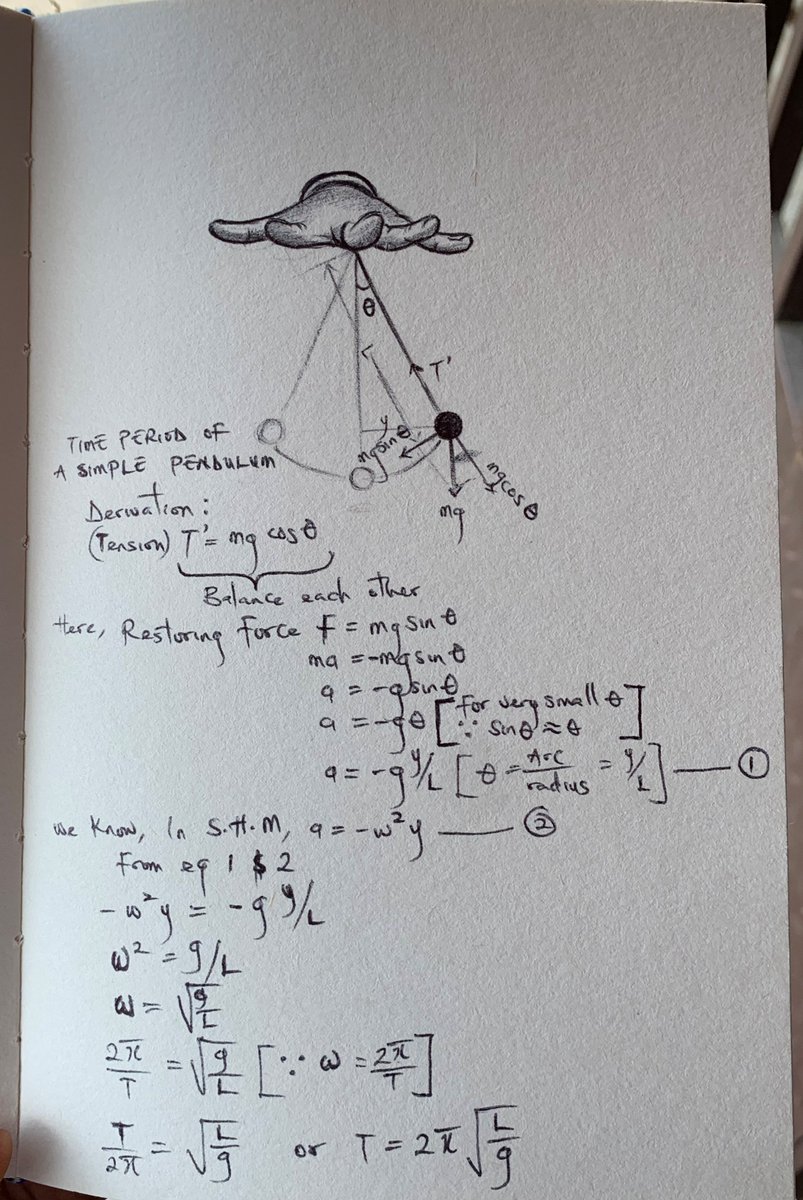 θ
T'
y
mg sin θ
mg cos θ
mg
TIME PERIOD OF
A SIMPLE PENDULUM
Derivation:
(Tension) T' = mg cos θ
Balance each other
Here, Restoring force f = mg sin θ
ma = -mg sin θ
a = -g sin θ
a = -gθ [For very small θ
∵ sin θ ≈ θ]
a = -g y/L [θ = Arc/radius = y/L] —— ①
We know, In S.H.M, a = -ω²y —— ②
From eq 1 & 2
-ω²y = -g y/L
ω² = g/L
ω = √(g/L)
2π/T = √(g/L) [∵ ω = 2π/T]
T/2π = √(L/g) or T = 2π √(L/g)